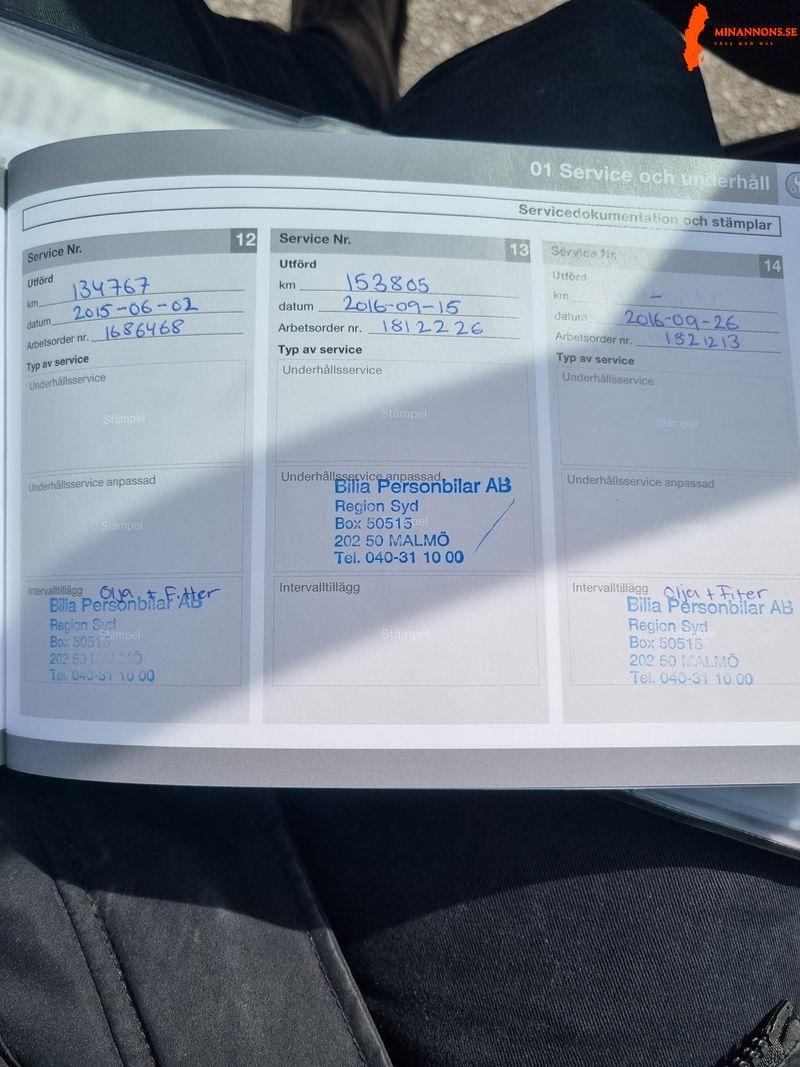 MINANNONS.SE
SÄLJ MED OSS
01 Service och underhåll
Servicedokumentation och stämplar
Service Nr. 12
Utförd
km 134767
datum 2015-06-02
Arbetsorder nr. 1686468
Typ av service
Underhållsservice
Stämpel
Underhållsservice anpassad
Stämpel
Intervalltillägg Olja + Filter
Bilia Personbilar AB
Region Syd
Stämpel
Box 50515
202 50 MALMÖ
Tel. 040-31 10 00
Service Nr. 13
Utförd
km 153805
datum 2016-09-15
Arbetsorder nr. 1812226
Typ av service
Underhållsservice
Stämpel
Underhållsservice anpassad
Bilia Personbilar AB
Region Syd
Box 50515
202 50 MALMÖ
Tel. 040-31 10 00
Intervalltillägg
Stämpel
Service Nr. 14
Utförd
km
datum 2016-09-26
Arbetsorder nr. 1821213
Typ av service
Underhållsservice
Stämpel
Underhållsservice anpassad
Stämpel
Intervalltillägg Olja + Fiter
Bilia Personbilar AB
Region Syd
Box 50515
202 50 MALMÖ
Tel. 040-31 10 00